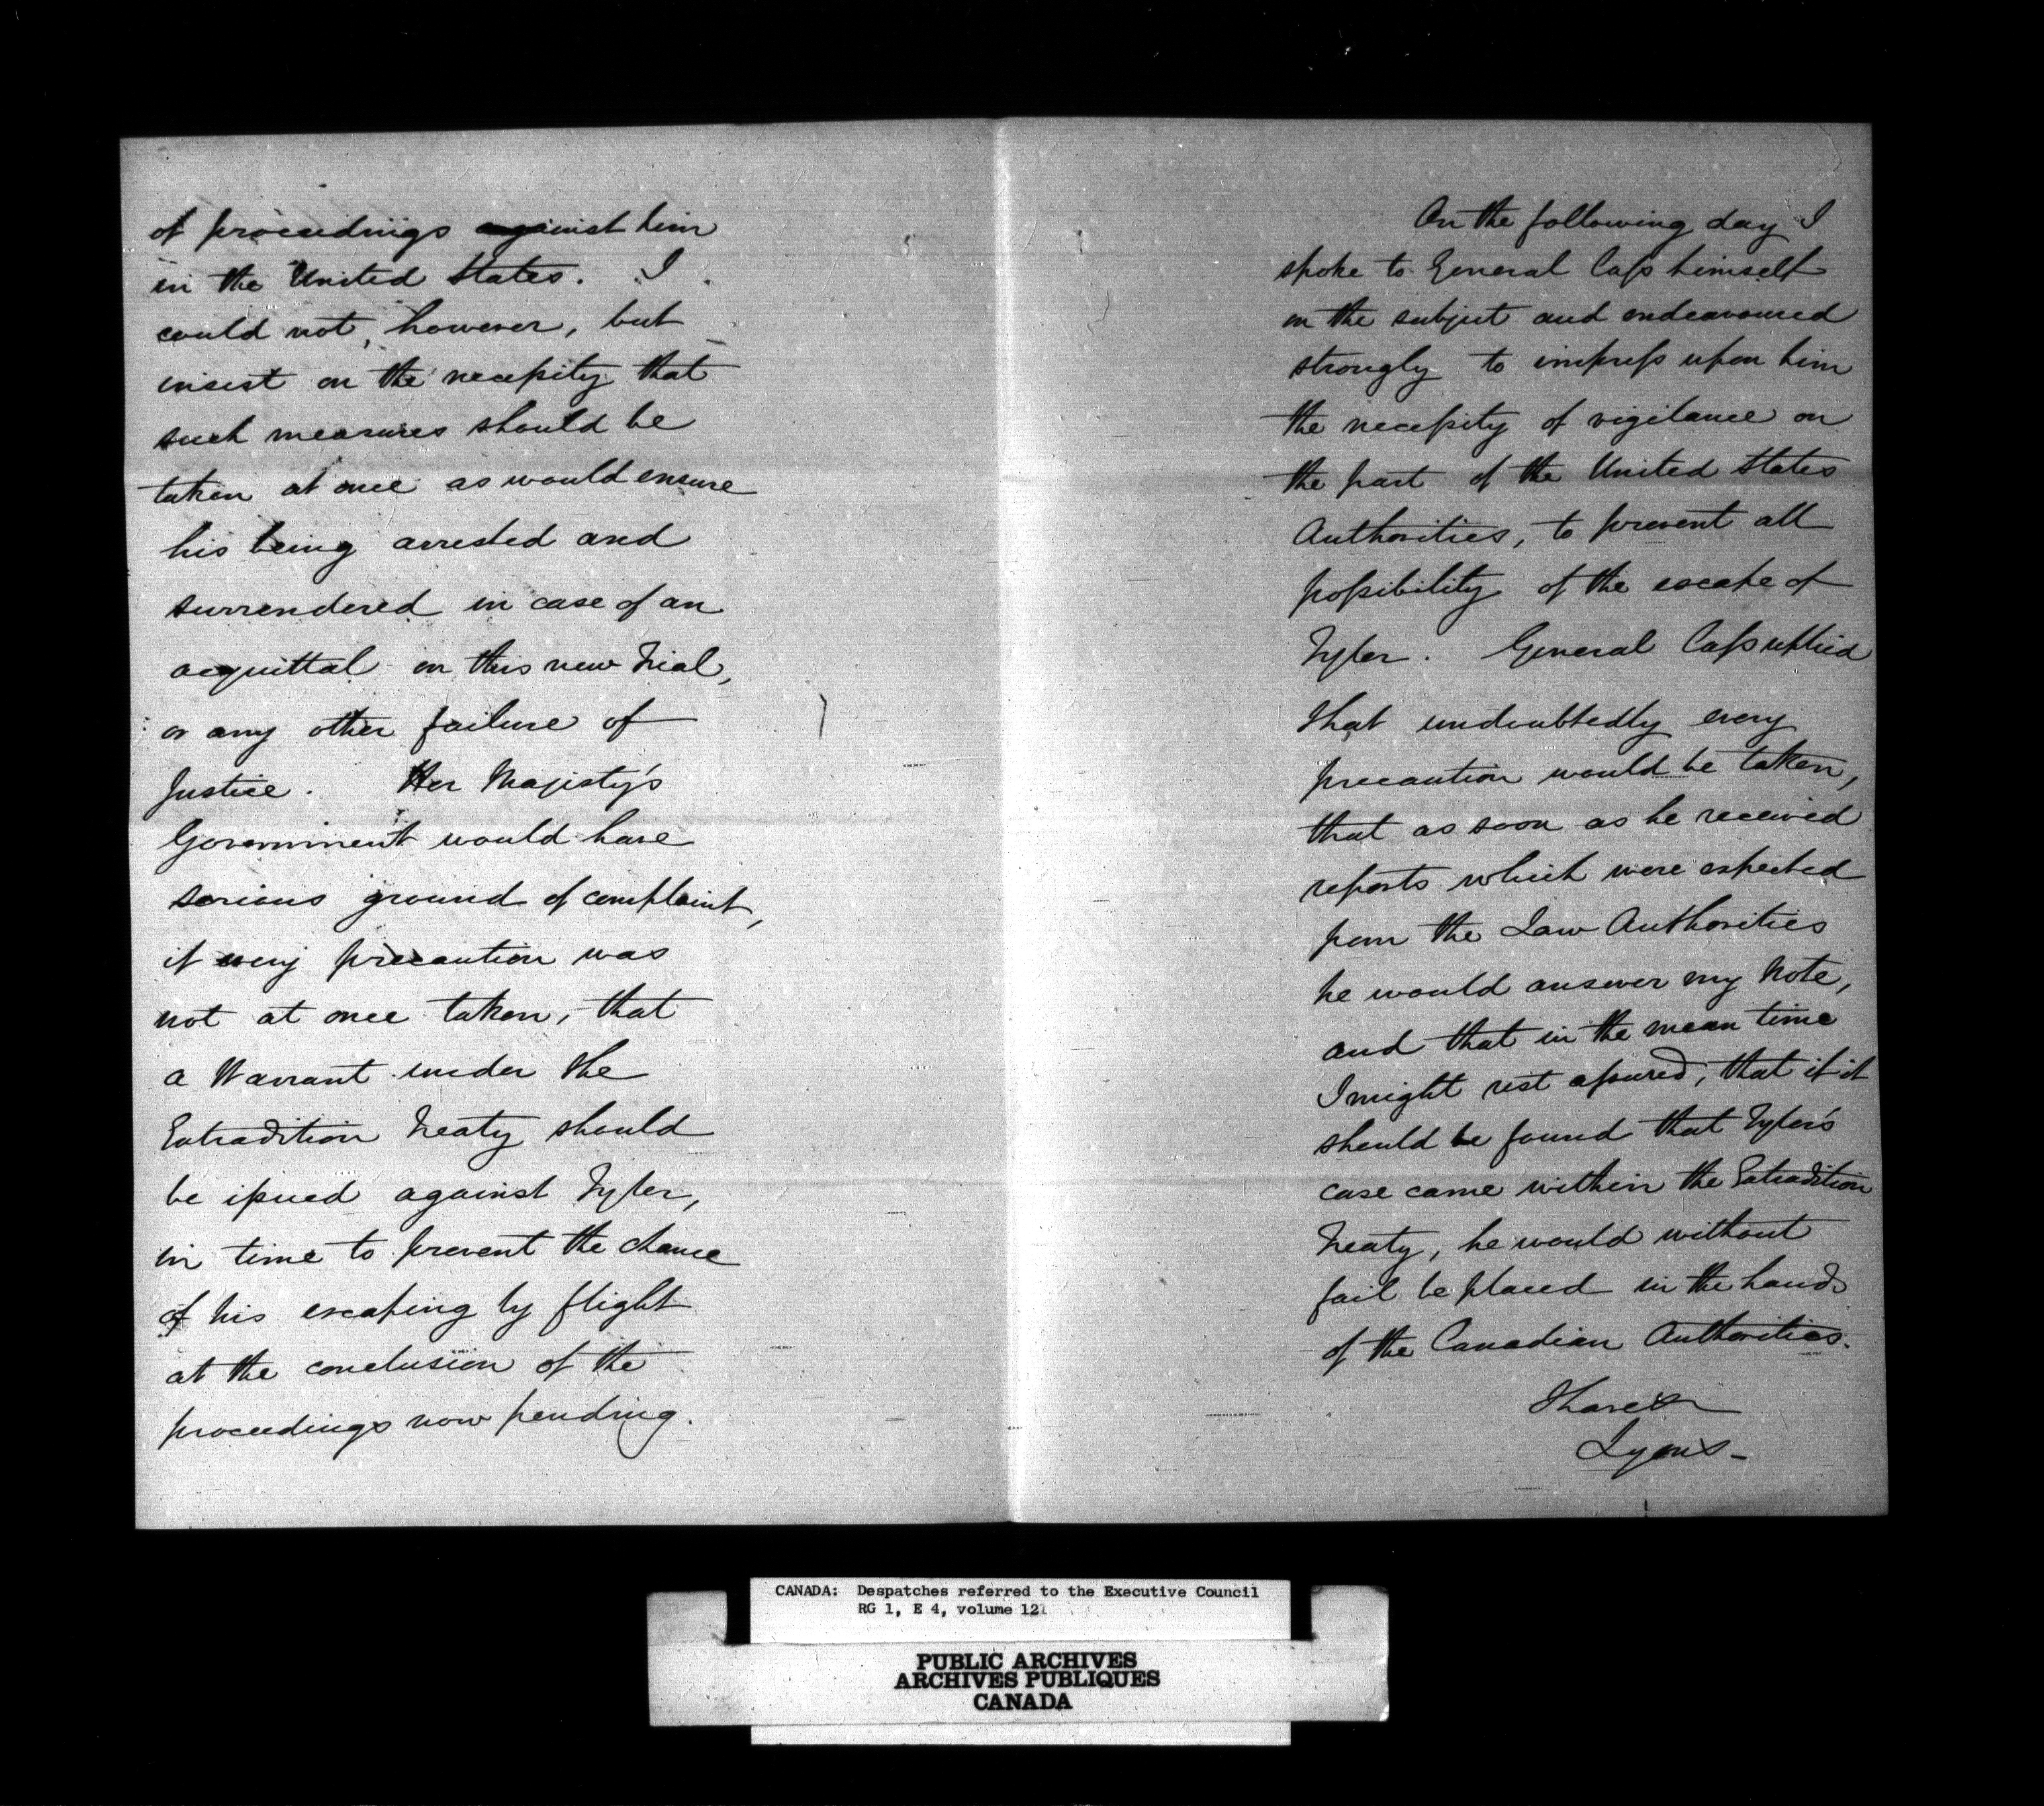 of proceedings against him
in the United States. I
could not, however, but
insist on the necessity that
such measures should be
taken at once as would ensure
his being arrested and
surrendered in case of an
acquittal on this new Trial,
or any other failure of
Justice. Her Majesty's
Government would have
serious ground of complaint,
if every precaution was
not at once taken, that
a Warrant under the
Extradition Treaty should
be issued against Tyler,
in time to prevent the chance
of his escaping by flight
at the conclusion of the
proceedings now pending.
On the following day I
spoke to General Cass himself
on the subject and endeavoured
strongly to impress upon him
the necessity of vigilance on
the part of the United States
Authorities, to prevent all
possibility of the escape of
Tyler. General Cass replied
that undoubtedly every
precaution would be taken,
that as soon as he received
reports which were expected
from the Law Authorities
he would answer my Note,
and that in the mean time
I might rest assured, that if it
should be found that Tyler's
case came within the Extradition
Treaty, he would without
fail be placed in the hands
of the Canadian Authorities.
I have &
Lyons -
CANADA: Despatches referred to the Executive Council
RG 1, E 4, volume 121
PUBLIC ARCHIVES
ARCHIVES PUBLIQUES
CANADA